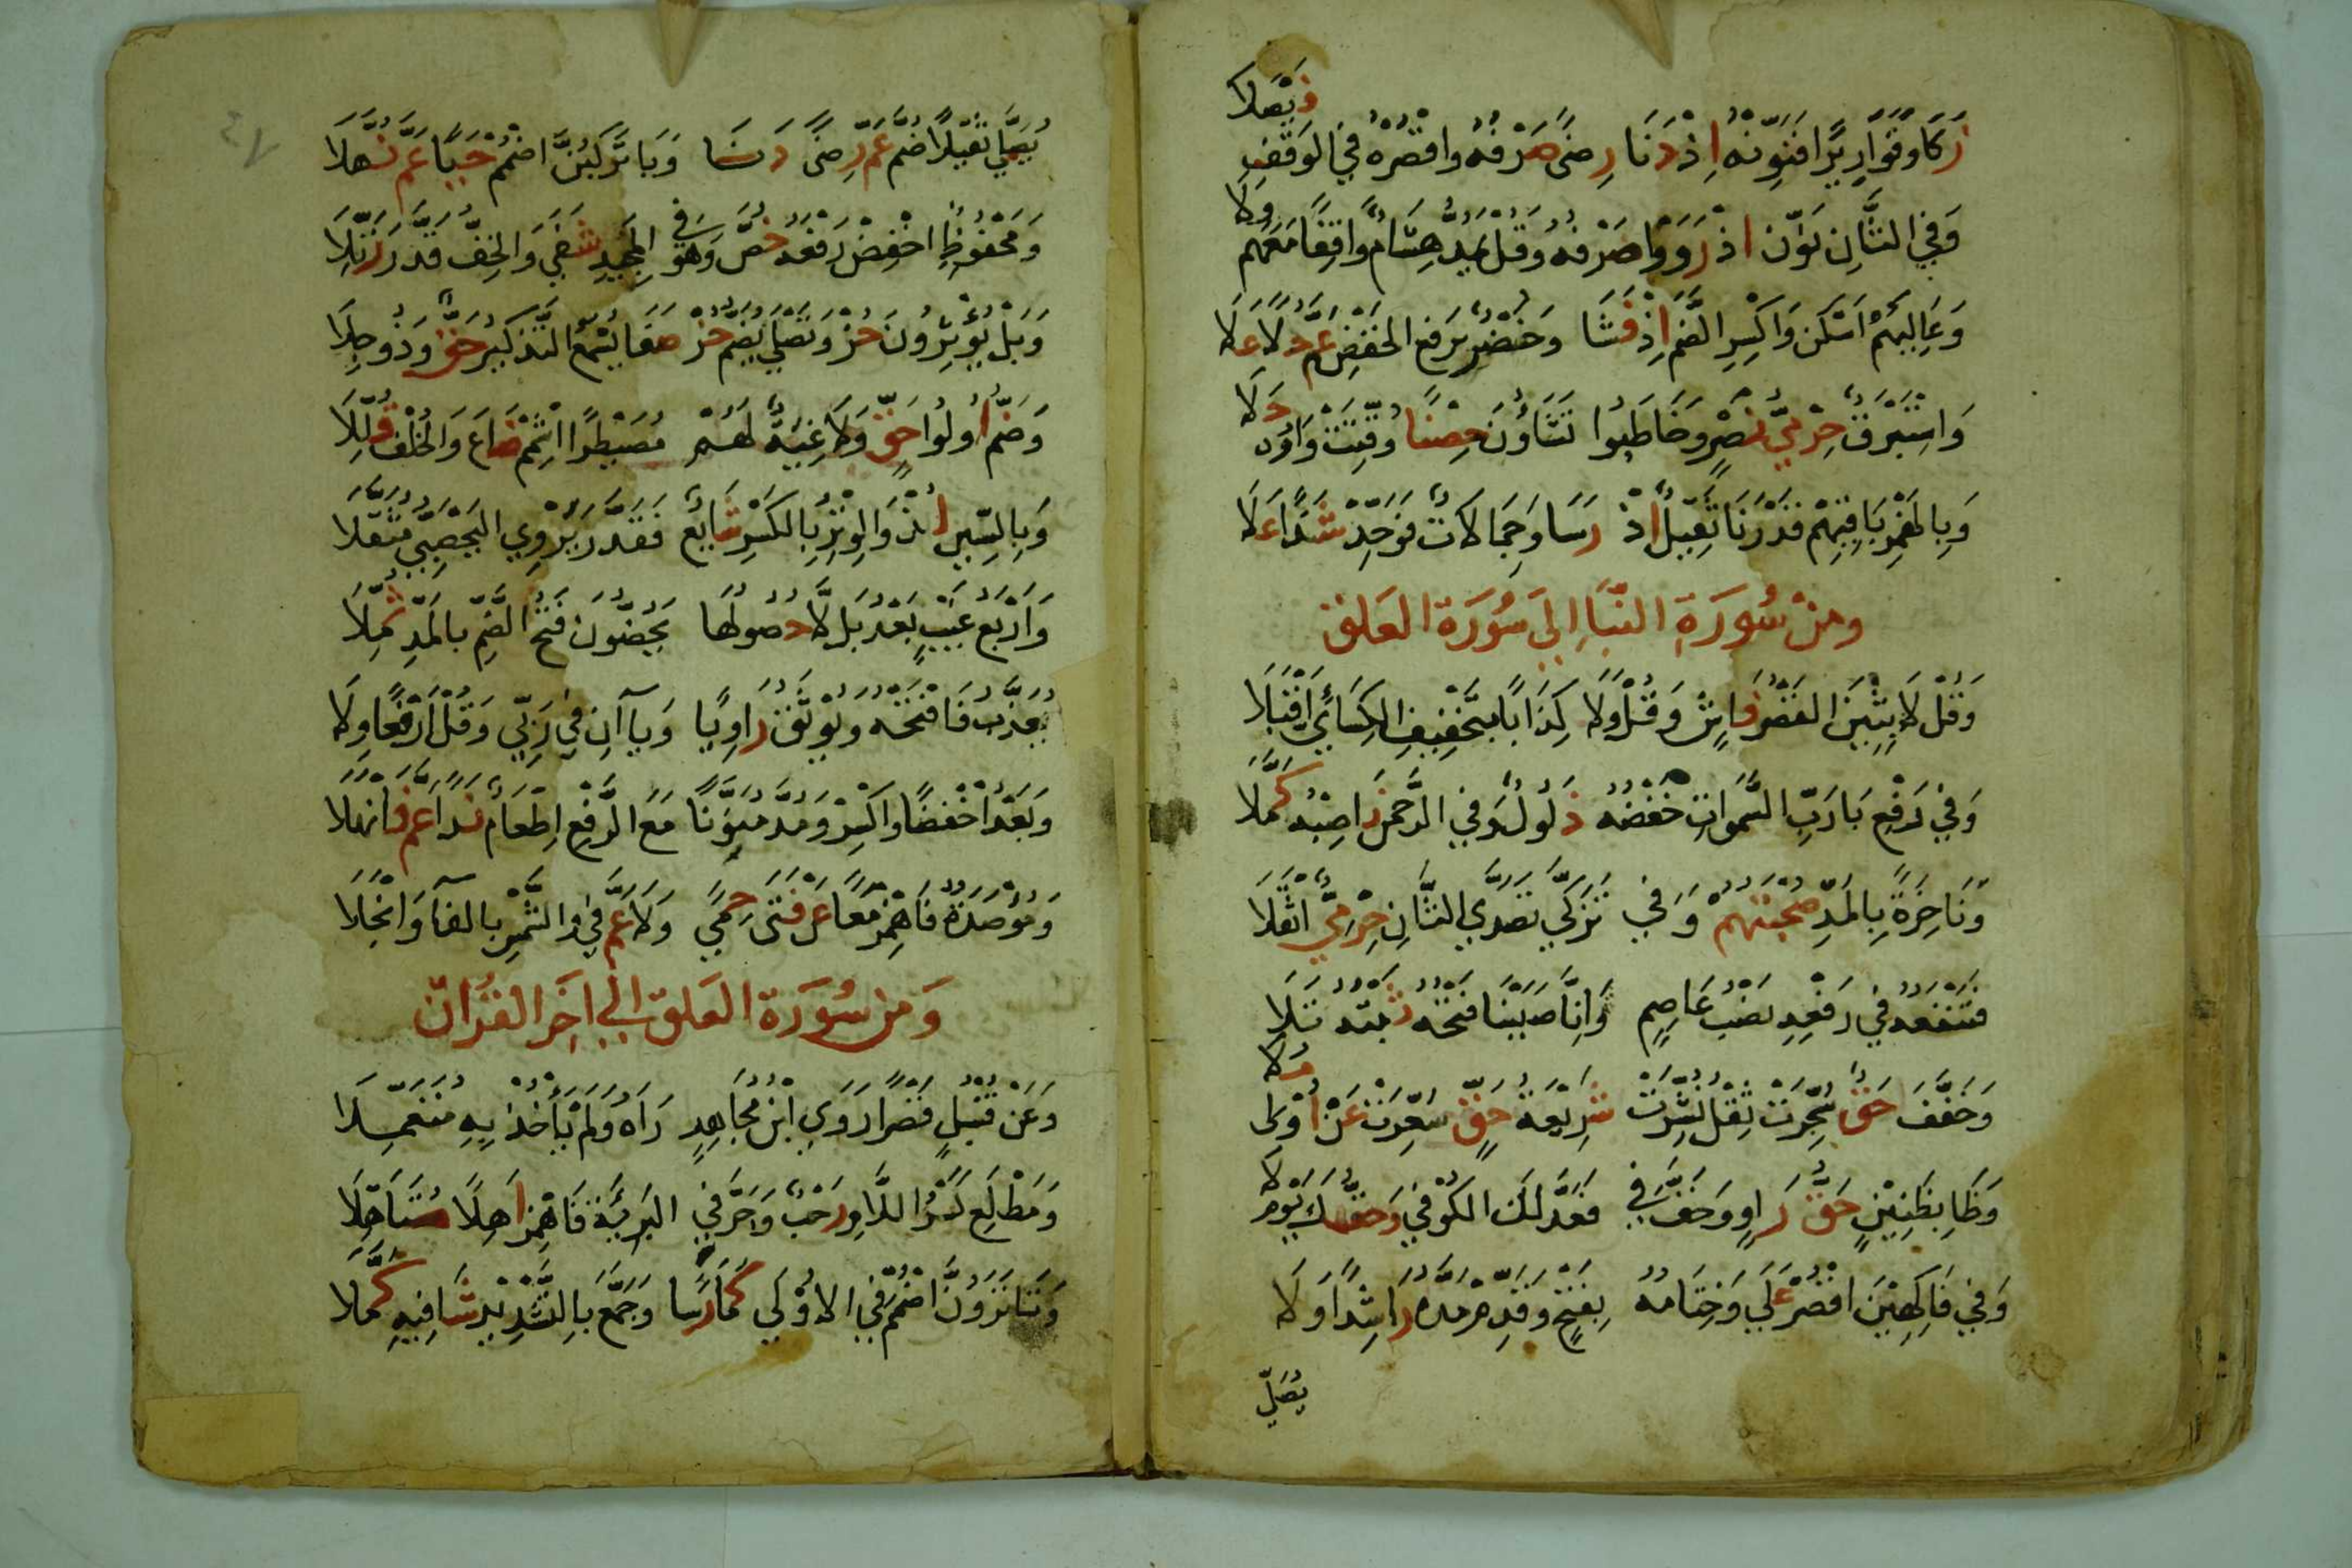 زَكَا وَقَوَارِيرًا فَنَوِّنْهُ إِذْ دَنَا رِضَى صَرْفِهِ وَاقْصُرْهُ فِي الْوَقْفِ فَيْصَلَا
وَفِي الثَّانِ نَوِّنْ إِذْ رَوَوْا صَرْفَهُ وَقُلْ يَمُدُّ هِشَامٌ وَاقِفًا مَعَهُمْ وِلَا
وَعَالِيهِمْ اسْكِنْ وَاكْسِرِ الضَّمَّ إِذْ فَشَا وَخُضْرٌ بِرَفْعِ الْخَفْضِ عَمَّ حُلًا عَلَا
وَإِسْتَبْرَقٌ حِرْمِيُّ نَصْرٍ وَخَاطَبُوا تَشَاؤُنَ حِصْنًا وُقِّتَتْ وَاوُهُ حَلَا
وَبِالْهَمْزِ بَاقِيهِمْ قَدَرْنَا ثَقِيلٌ إِذْ رَسَا وَجِمَالَاتٌ فَوَحِّدْ شَذًا عَلَا
وَمِنْ سُورَةِ النَّبَإِ إِلَى سُورَةِ الْعَلَقِ
وَقُلْ لَابِثِينَ الْقَصْرُ فَاشٍ وَقُلْ وَلَا كِذَابًا بِتَخْفِيفِ الْكِسَائِيِّ أَقْبَلَا
وَفِي رَفْعِ بَا رَبُّ السَّمَوَاتِ خَفْضُهُ ذَلُولٌ وَفِي الرَّحْمَنِ نَاصِبُهُ كَمَّلَا
وَنَاخِرَةً بِالْمَدِّ صُحْبَتُهُمْ وَفِي تَزَكَّى تَصَدَّى الثَّانِ حِرْمِيٌّ اثْقَلَا
فَتَنْفَعُهُ فِي رَفْعِهِ نَصْبُ عَاصِمٍ وَإِنَّا صَبَبْنَا فَتْحُهُ ثَبْتُهُ تَلَا
وَخَفَّفَ حَقٌّ سُجِّرَتْ ثِقْلُ نُشِّرَتْ شَرِيعَةُ حَقٍّ سُعِّرَتْ عَنْ أُولِي مَلَا
وَظَا بِظَنِينٍ حَقُّ رَاوٍ وَخَفَّ فِي فَعَدَّلَكَ الْكُوفِي وَحَقُّكَ يَوْمُ لَا
وَفِي فَاكِهِينَ اقْصُرْ عُلًى وَخِتَامُهُ بِفَتْحٍ وَقَدِّمْ مَدَّهُ رَاشِدًا وَلَا
يُصَلَّى
يُصَلَّى ثَقِيلًا ضُمَّ عَمَّ رِضًى دَنَا وَبَا تَرْكَبُنَّ اضْمُمْ حَيًا عَمَّ نُهَّلَا
وَمَحْفُوظٌ اخْفِضْ رَفْعَهُ خُصَّ وَهُوَ فِي الْمَجِيدِ شَفَى وَالْخِفُّ قَدَّرَ رُتِّلَا
وَبَلْ يُؤْثِرُونَ حُزْ وَتَصْلَى يُضَمُّ حُزْ صَفَا يُسْمَعُ التَّذْكِيرُ حَقٌّ وَذُو جِلَا
وَضَمَّ أُولُوا حَقٍّ وَلَاغِيَةٌ لَهُمْ مُصَيْطِرًا اشْمِمْ ضَاعَ وَالْخُلْفُ قُلِّلَا
وَبِالسِّينِ لُذْ وَالْوِتْرِ بِالْكَسْرِ شَايِعٌ فَقَدَّرَ يَرْوِي الْيَحْصُبِيُّ مُثَقَّلَا
وَأَرْبَعُ غَيْبٍ بَعْدَ بَلْ لَا حُصُولُهَا يَحُضُّونَ فَتْحُ الضَّمِّ بِالْمَدِّ ثُمِّلَا
يُعَذِّبُ فَافْتَحْهُ وَيُوثِقُ رَاوِيًا وَيَاآنِ فِي رَبِّي وَفُكَّ ارْفَعًا وِلَا
وَبَعْدُ اخْفِضًا وَاكْسِرْ وَمُدَّ مُنَوِّنًا مَعَ الرَّفْعِ إِطْعَامٌ نَدًا عَمَّ فَانْهَلَا
وَمُؤْصَدَةٌ فَاهْمِزْ مَعًا عَنْ فَتَى حِمًى وَلَا عَمَّ فِي وَالشَّمْسِ بِالْفَاءِ وَانْجَلَا
وَمِنْ سُورَةِ الْعَلَقِ إِلَى آخِرِ الْقُرْآنِ
وَعَنْ قُنْبُلٍ قَصْرًا رَوَى ابْنُ مُجَاهِدٍ رَآهُ وَلَمْ يَأْخُذْ بِهِ مُتَعَمِّلَا
وَمَطْلَعِ كَسْرُ اللَّامِ رَحْبٌ وَحَرْفَيِ الْبَرِيَّةِ فَاهْمِزْ آهِلًا مُتَأَهِّلَا
وَتَا تَرَوُنَّ اضْمُمْ فِي الْأُولَى كَمَا رَسَا وَجَمَّعَ بِالتَّشْدِيدِ شَافِيهِ كَمَّلَا